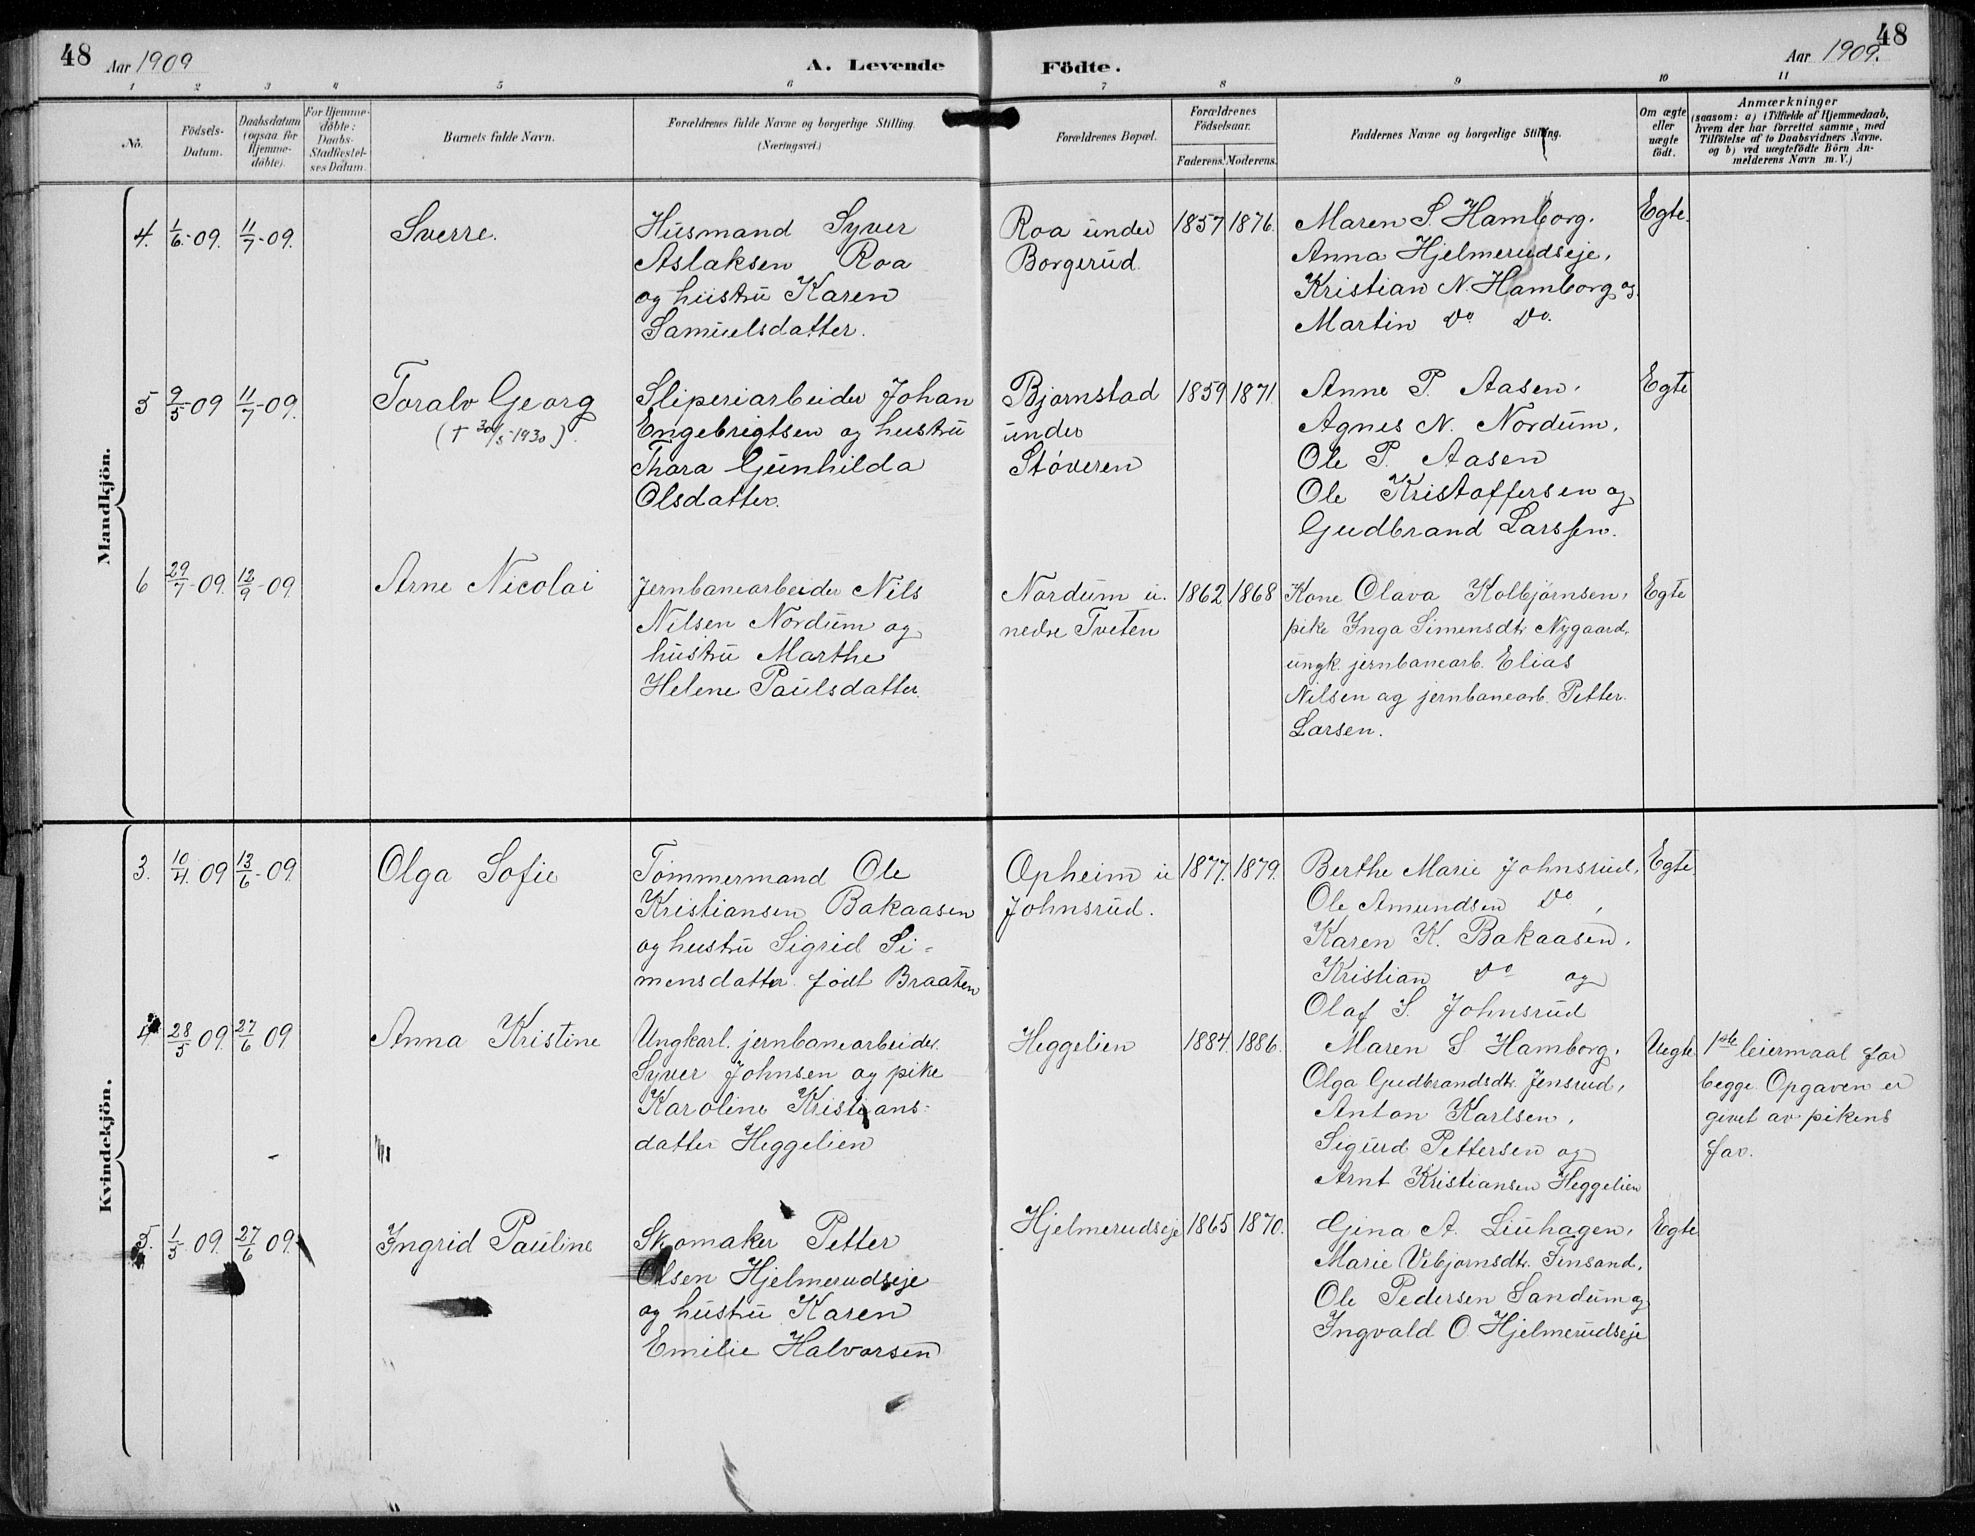 48 Aar 1909 A. Levende Födte. Aar 1909. 48
1 2 3 4 5 6 7 8 9 10 11
No.
Födsels-
Datum.
Daabsdatum
(ogsaa for
Hjemme-
døbte).
For Hjemme-
döbte:
Daabs-
Stadfæstel-
ses Datum.
Barnets fulde Navn.
Forældrenes fulde Navne og borgerlige Stilling.
(Næringsvei.)
Forældrenes Bopæl.
Forældrenes
Födselsaar.
Faderens. Moderens.
Faddernes Navne og borgerlige Stilling.
Om ægte
eller
uægte
födt.
Anmærkninger
(saasom: a) i Tilfælde af Hjemmedaab,
hvem der har forrettet samme, med
Tilföielse af to Daabsvidners Navne.
og b) ved uægtefödte Börn An-
melderens Navn m. V.)
Mandkjön.
4. 1/6-09. 11/7-09. Sverre.
Husmand Syver
Aslaksen Roa
og hustru Karen
Samuelsdatter.
Roa under
Borgerud.
1857 1876.
Maren S. Hamborg.
Anna Hjelmerudseje,
Kristian N. Hamborg og
Martin Do Do.
Egte.
5 9/5-09 11/7-09. Toralv Georg
(† 30/5-1930).
Sliperiarbeider Johan
Engebrigtsen og hustru
Thora Gunhilda
Olsdatter.
Bjørnstad
under
Støveren
1859 1871.
Anne P. Aasen.
Agnes N. Nordum.
Ole P. Aasen
Ole Kristoffersen og
Gudbrand Larssen.
Egte
6 29/7-09. 12/9-09. Arne Nicolai
Jernbanearbeider Nils
Nilsen Nordum og
hustru Marthe
Helene Paulsdatter.
Nordum u.
nedre Tveten
1862 1868
Kone Olava Kolbjørnsen,
pike Inga Simensdtr Nygaard,
ungk. jernbanearb. Elias
Nilsen og jernbanearb. Petter
Larsen.
Egte
Kvindekjön.
3. 10/4. 09 13/6-09. Olga Sofie
Tømmermand Ole
Kristiansen Bakaasen
og hustru Sigrid Si-
mensdatter født Braaten
Opheim u
Johnsrud.
1877. 1879.
Berthe Marie Johnsrud,
Ole Amundsen Do,
Karen K. Bakaasen,
Kristian Do og
Olaf S. Johnsrud
Egte
4 28/5 09. 27/6 09 Anna Kristine
Ungkarl. jernbanearbeider
Syver Johnsen og pike
Karoline Kristians-
datter Heggelien
Heggelien
1884. 1886.
Maren S Hamborg.
Olga Gudbrandsdtr. Jensrud,
Anton Karlsen,
Sigurd Pettersen og
Arnt Kristiansen Heggelien
Uegte
1ste leiermaal for
begge. Opgaven er
givet av pikens
far.
5. 1/5 09. 27/6 09. Ingrid Pauline
Skomaker Petter
Olsen Hjelmerudseje
og hustru Karen
Emilie Halvorsen
Hjelmerudseje
1865 1870.
Gina A. Liuhagen,
Marie Vebjørnsdtr. Finsand,
Ole Pedersen Sandum og
Ingvald O. Hjelmerudseje
Egte